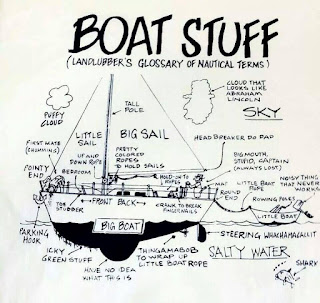 BOAT STUFF
(LANDLUBBER'S GLOSSARY OF NAUTICAL TERMS)
PUFFY
CLOUD
TALL
POLE
CLOUD THAT
LOOKS LIKE
ABRAHAM
LINCOLN
SKY
LITTLE
SAIL
BIG SAIL
HEAD BREAKER DO DAD
FIRST MATE
UP AND
DOWN ROPE
PRETTY
COLORED
ROPES
TO HOLD SAILS
BIG MOUTH,
STUPID, CAPTAIN
(ALWAYS LOST)
POINTY
END
BEDROOM
HOLD-ON TO
ROPES
MAT
ROUND
END
LITTLE BOAT
ROPE
NOISY THING
THAT NEVER
WORKS
ROWING POLES
TOE
STUBBER
FRONT
BACK
CRANK TO BREAK
FINGERNAILS
LITTLE BOAT
PARKING
HOOK
BIG BOAT
STEERING WHACHAMACALLIT
ICKY
GREEN STUFF
THINGAMABOB
TO WRAP UP
LITTLE BOAT ROPE
SALTY WATER
HAVE NO IDEA
WHAT THIS IS
SHARK